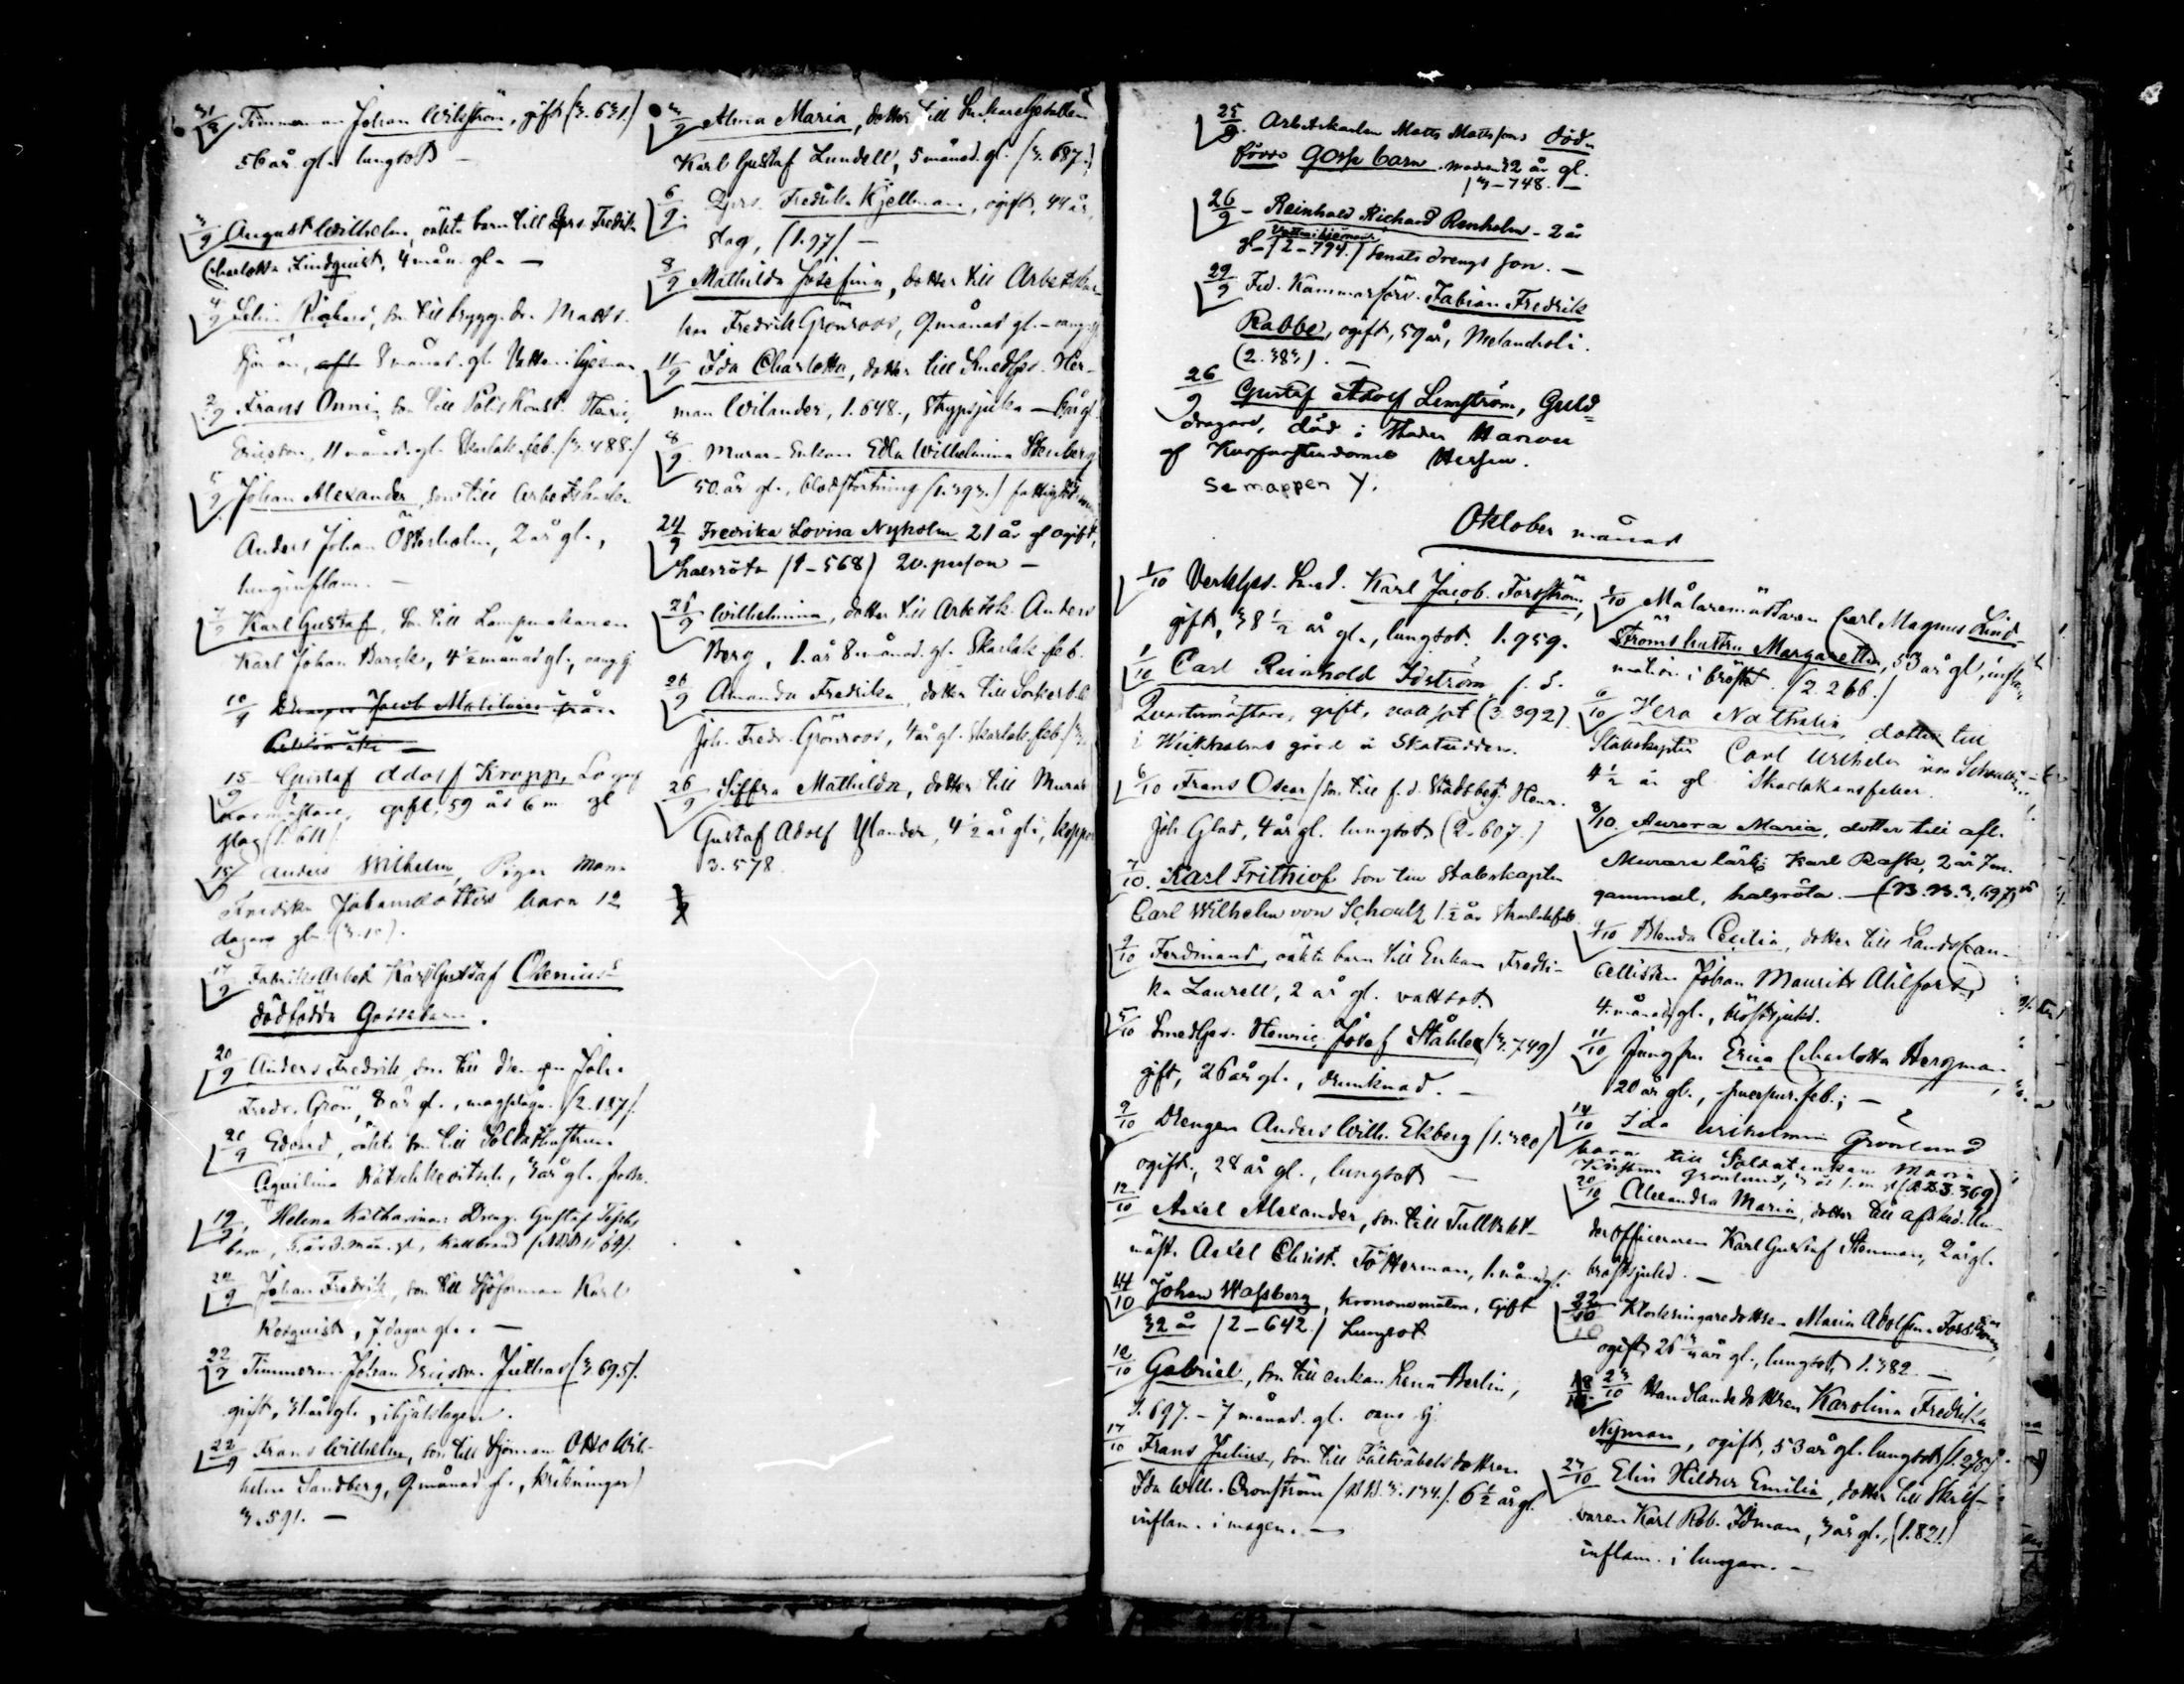 31/8 Timmerman Johan Wikström, gift (3.631.)
56 år gl. lungsot —
3/9 August Wilhelm, oäkta barn till Pgs. Fredrika
Charlotta Lindquist, 4 mån. gl. —
4/9 Richard, son till brygg.dr. Matts
8 månad. gl. Vatten i hjernan
2/9 Frans Onni, son till Poliskonst. Henric
Ericson, 11 månad. gl. Skarlak.feb. (3.488.)
5/9 Johan Alexander, son till Arbetskarlen
Anders Johan Österholm, 2 år gl.,
lunginflam. —
7/9 Karl Gustaf, son till Lampmakaren
Karl Johan Barck, 4½ månad gl.,
10/9 Drengen Jacob från
15/9 Gustaf Adolf Kropp,
gift, 59 år 6 m gl
slag (1.611)
15/9 Anders Wilhelm, Pigan
Fredrika Johansdotters barn 12
dagar gl. (3.10).
17/9 Fabriksarbet. Karl Gustaf Olenius
dödfödda Gossebarn.
20/9 Anders Fredrik, son till drengen Joh.
Fredr. Grön, 8 år gl., magplåga. (2.187).
21/9 Edvard, äkta son till Soldathustrun
Aquilina, 3 år gl.
19/9 Helena Katharina: Dreng. Gustaf
barn, 5 år 3 mån. gl., kallbrand
24/9 Johan Fredrik, son till Sjöforman Karl
Rosquist, 7 dagar gl. —
22/9 Timmerm. Johan Ericson Juthas (3.695).
gift, 31 år gl., ihjälslagen.
22/9 Frans Wilhelm, son till Sjöman Otto Wil-
helm Sandberg, 9 månad. gl., kräkningar
3.591. —
3/9 Alma Maria, dotter till
Karl Gustaf Lundell, 5 månad. gl. (3.687.)
6/9 Pgrs. Fredrika Kjellman, ogift, 44 år,
slag, (1.97). —
8/9 Mathilda Josefina, dotter till Arbetskar-
len Fredrik Grönroos, 9 månad gl. —
11/9 Ida Charlotta, dotter till Smedges. Her-
man Wilander, 1.648., Strypsjuka — 6 år gl.
8/9 Murar-Enkan Edla Wilhelmina Stenberg
50 år gl., blodstörtning (1.393.)
24/9 Fredrika Lovisa Nyholm 21 år gl ogift,
halsröta (1-568) Qv.person —
21/9 Wilhelmina, dotter till Arbetsk. Anders
Berg, 1 år 8 månad. gl. Skarlak.feb.
26/9 Amanda Fredrika, dotter till Sockerbr.
Joh. Fredr. Grönroos, 4 år gl. Skarlak.feb.
26/9 Siffra Mathilda, dotter till Murar
Gustaf Adolf Ylander, 4½ år gl., koppor
3.578
25/9. Arbetskarlen Matts Mattssons död-
födde Gosse barn. modren 32 år gl.
3-748. —
26/9 - Reinhold Richard Renholm - 2 år
Vatten i hjernan
gl - (2-794.) Senats drengs son. —
29/9 Fd. Kammarförv. Fabian Fredrik
Rabbe, ogift, 59 år, Melancholi.
(2.383). —
26/9 Gustaf Adolf Lemström, Guld-
dragare, död i Staden Hanau
af Kurfurstendömet Hessen.
Se mappen Y.
Oktober månad
1/10 Verkges. Smed. Karl Jacob Forsström,
gift, 38½ år gl., lungsot. 1.959.
1/10 Carl Reinhold Idström, f. d.
Qvartermästare, gift, vattsot (3.392).
i Wickholms gård å Skatudden.
6/10 Frans Oscar, son till f. d. Stadsbetj. Henr.
Joh. Glad, 4 år gl. lungsot (2-607.)
7/10. Karl Frithiof son till Stabskapten
Carl Wilhelm von Schoultz 1½ år Skarlakfeb.
9/10 Ferdinand, oäkta barn till Enkan Fredri-
ka Laurell, 2 år gl. vattsot.
5/10 Smedges. Henric Josef Ståhle (3.749)
gift, 26 år gl., drunknad. —
9/10 Drengen Anders Wilh. Ekberg (1.320)
ogift, 28 år gl., lungsot —
12/10 Axel Alexander, son till Tullvakt-
mäst. Axel Christ. Totterman, 1 månad gl.
14/10 Johan Wassberg, Krononomaden, Gift
32 år (2-642) Lungsot
12/10 Gabriel, son till enkan Lena Berlin,
3.697. - 7 månad. gl.
17/10 Frans Julius, son till Fältväbelsdottren
Ida Wilh. Cronström (N.N.3.134.). 6½ år gl.
inflam. i magen. —
1/10 Målaremästaren Carl Magnus Lind-
ströms hustru Margaretha, 53 år gl, inflam-
mation i bröstet. (2.266.)
6/10 Vera Nathalia, dotter till
Stabskapten Carl Wilhelm von Schoultz
4½ år gl Skarlakansfeber.
8/10. Aurora Maria, dotter till afl.
Murare lärl: Karl Rask, 2 år 7 m.
gammal, halsröta. — (N.N.3.697)
9/10 Blenda Cecilia, dotter till Landscan-
cellisten Johan Mauritz Ahlfors,
4 månad gl., bröstsjukd.
11/10 Jungfru Erica Charlotta Bergman
20 år gl., puerpur.feb.; —
14/10 Ida Wilhelmina Grönlund
barn till Soldatenkan Maria
Kristina Grönlund, (N.N.3.369)
20/10 Alexandra Maria, dotter till afsked. Un-
derofficeraren Karl Gustaf Stenman, 2 år gl.
bröstsjukd. —
22/10 Klockringaredottren Maria Adolfina Forsström,
ogift, 26¾ år gl., lungsot, 1.382. —
23/10 Handlandedottren Karolina Fredrika
Nyman, ogift, 53 år gl. lungsot
23/10 Elin Hildur Emilia, dotter till Skrif-
varen Karl Rob. Idman, 3 år gl., (1.821.)
inflam. i lungan. —